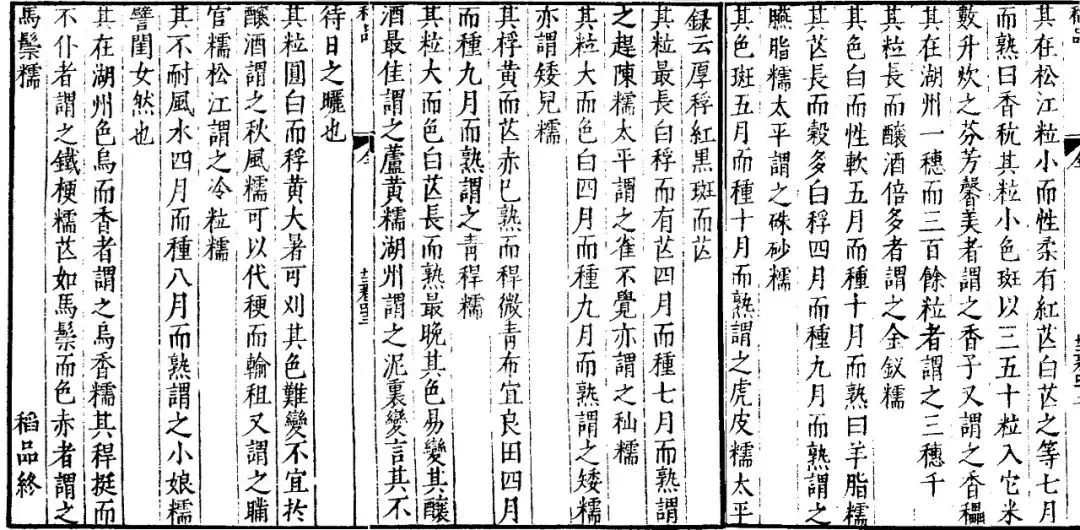 其在松江粒小而性柔有紅芒白芒之等七月
而熟曰香秔其粒小色斑以三五十粒入它米
數升炊之芬芳馨美者謂之香子又謂之香穤
其在湖州一穗而三百餘粒者謂之三穗千
其粒長而釀酒倍多者謂之金釵糯
其色白而性軟五月而種十月而熟曰羊脂糯
其芒長而穀多白稃四月而種九月而熟謂之
臙脂糯太平謂之硃砂糯
其色斑五月而種十月而熟謂之虎皮糯太平
録云厚稃紅黑斑而芒
其粒最長白稃而有芒四月而種七月而熟謂
之趕陳糯太平謂之雀不覺亦謂之秈糯
其粒大而色白四月而種九月而熟謂之矮糯
亦謂矮兒糯
其稃黃而芒赤已熟而稈微青布宜良田四月
而種九月而熟謂之青稈糯
其粒大而色白芒長而熟最晚其色易變其釀
酒最佳謂之蘆黃糯湖州謂之泥裏變言其不
待日之曬也
其粒圓白而稃黃大暑可刈其色難變不宜於
釀酒謂之秋風糯可以代稉而輸租又謂之瞞
官糯松江謂之冷粒糯
其不耐風水四月而種八月而熟謂之小娘糯
譬閨女然也
其在湖州色烏而香者謂之烏香糯其稈挺而
不仆者謂之鐵梗糯芒如馬鬃而色赤者謂之
馬鬃糯
稻品終